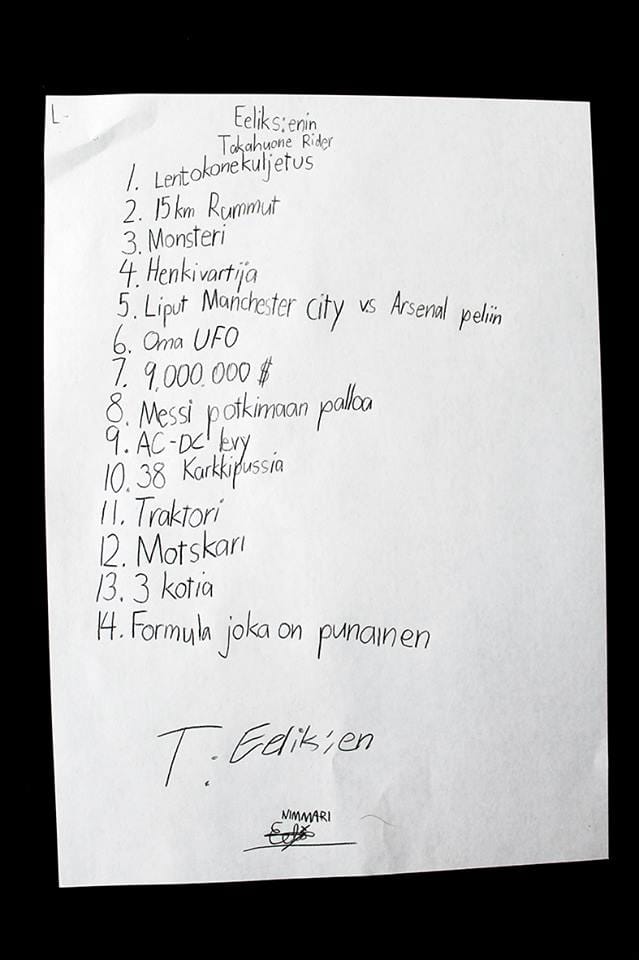 L.
Eeliks:enin
Takahuone Rider
1. Lentokonekuljetus
2. 15km Rummut
3. Monsteri
4. Henkivartija
5. Liput Manchester city vs Arsenal peliin
6. Oma UFO
7. 9.000.000 $
8. Messi potkimaan palloa
9. AC-DC levy
10. 38 Karkkipussia
11. Traktori
12. Motskari
13. 3 kotia
14. Formula joka on punainen
T: Eeliks:en
NIMMARI